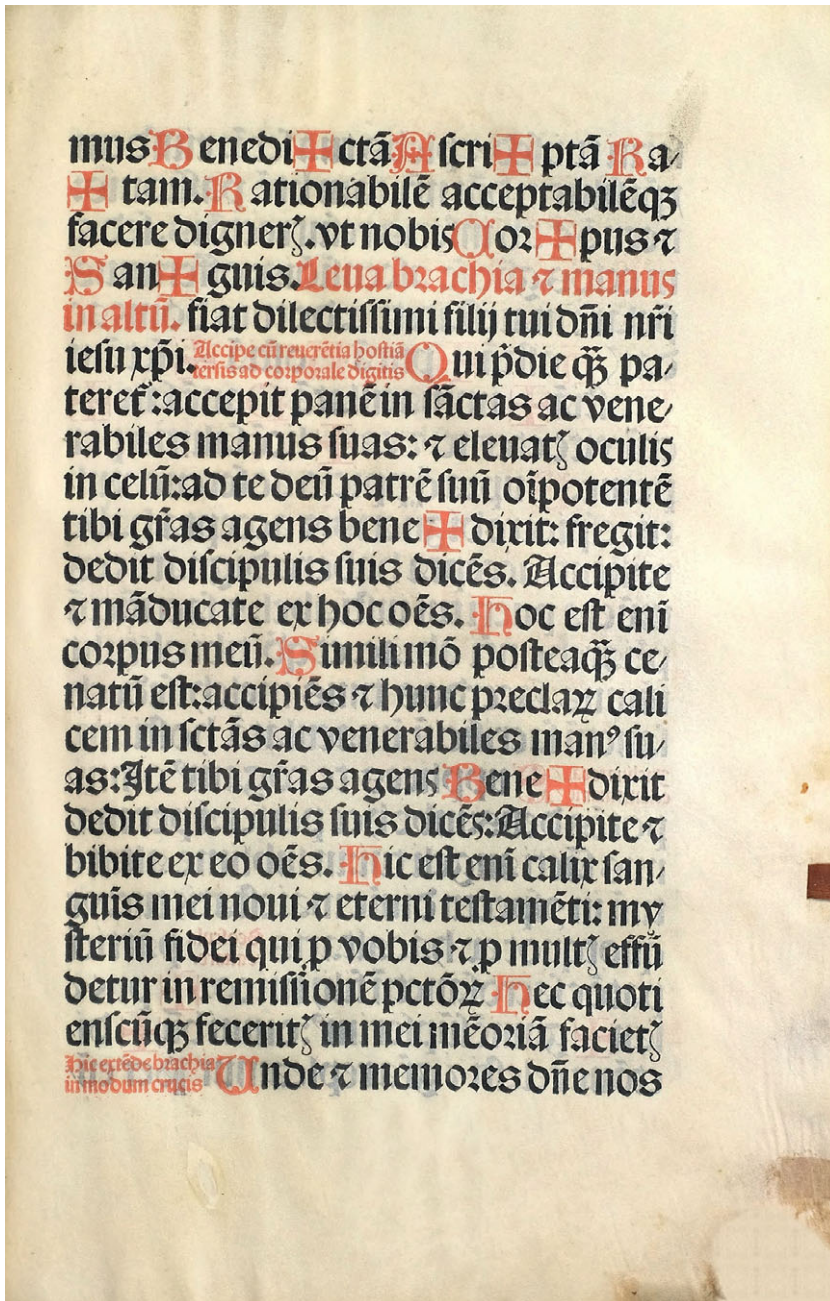 mus Benedi✠ctā Ascri✠ptā Ra/
✠ tam. Rationabilē acceptabilēqꝫ
facere dignerꝭ. vt nobis Cor✠pus ⁊
San✠guis. Leua brachia ⁊ manus
in altū. fiat dilectissimi filij tui dñi nr̄i
iesu xp̄i. Accipe cū reuerētia hostiā
tersis ad corporale digitis Qui p̄die qꝫ̄ pa/
teret᷑: accepit panē in sāctas ac vene/
rabiles manus suas: ⁊ eleuatꝭ oculis
in celū: ad te deū patrē suū oīpotentē
tibi gr̄as agens bene✠dixit: fregit:
dedit discipulis suis dicēs. Accipite
⁊ māducate ex hoc oēs. Hoc est enī
corpus meū. Simili mō posteaqꝫ̄ ce/
natū est: accipiēs ⁊ hunc preclaꝝ cali
cem in sctās ac venerabiles manꝰ su/
as: Itē tibi gr̄as agens Bene✠dixit
dedit discipulis suis dicēs: Accipite ⁊
bibite ex eo oēs. Hic est enī calix san/
guīs mei noui ⁊ eterni testamēti: my
steriū fidei qui ꝓ vobis ⁊ ꝓ multꝭ effū
detur in remissionē pctōꝝ Hec quoti
enscūqꝫ feceritꝭ in mei mēoriā facietꝭ
Hic extēde brachia
in modum crucis Unde ⁊ memores dn̄e nos